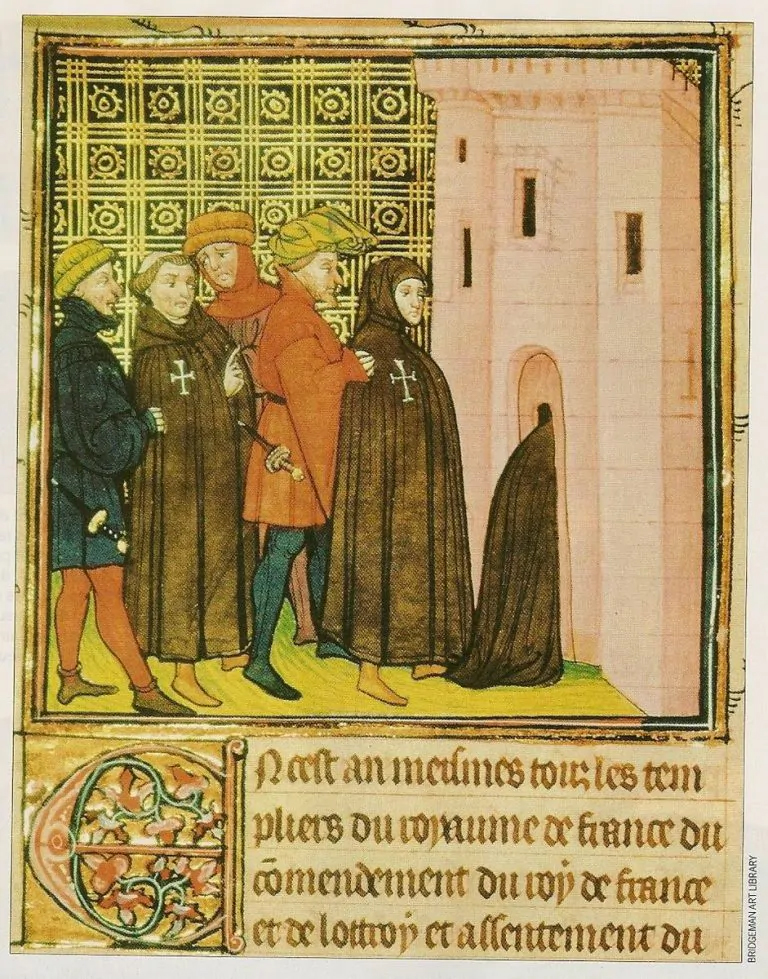 EN cest an meismes touz les tem
pliers du royaume de france du
cōmendement du roy de france
et de lottroy et assentement du
BRIDGEMAN ART LIBRARY